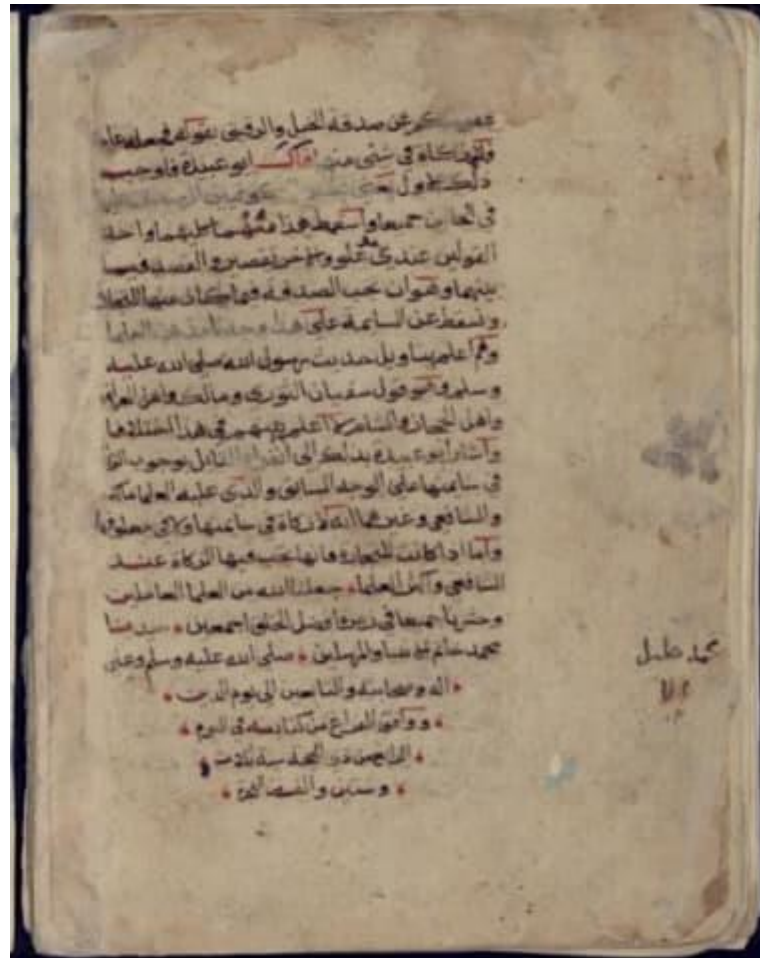 عن صدقة الخيل والرقيق بقوله فجعله عام
ولا زكاة في شئ منها قال ابو عبيدة فاوجب
ذلك الاول
في الحالين جميعا واسقط هذا منهما كلتيهما واحد
القولين عندي غلو والاخر تقصير والقصد فيما
بينهما وهو ان تجب الصدقة فيما كان منها للتجارة
وتسقط عن السائمة على هذا وجدنا مذهب العلما
وهم اعلم بتاويل حديث رسول الله صلى الله عليه
وسلم وهو قول سفيان الثوري ومالك واهل العراق
واهل الحجاز والشام لا اعلم بينهم في هذا اختلافا
واشار ابو عبيدة بذلك الى انفراد القائل بوجوب الزكاة
في سائمتها على الوجه السابق والذي عليه العلما مالك
والشافعي وغيرهما انه لا زكاة في سائمتها ولا في معلوفها
واما اذا كانت للتجارة فانها تجب فيها الزكاة عند
الشافعي واكثر العلما جعلنا الله من العلما العاملين
وحشرنا جميعا في زمرة افضل الخلق اجمعين سيدنا
محمد خاتم الانبيا والمرسلين صلى الله عليه وسلم وعلى
اله وصحابته والتابعين الى يوم الدين
ووافق الفراغ من كتابته في اليوم
الرابع من ذي الحجة سنة ثلاث
وستين والف
محمد خليل